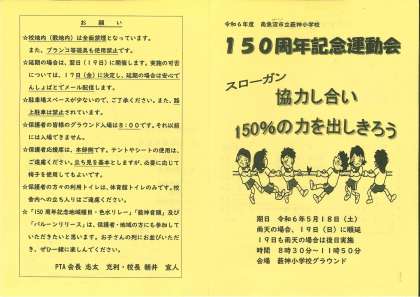 お　願　い
☆校地内（敷地内）は全面禁煙となっています。
また、ブランコ等遊具も使用禁止です。
☆延期の場合は、翌日（19日）に開催します。実施の可否
については、17日（金）に決定し、延期の場合は安心で
んしょばとでメール配信します。
☆駐車場スペースが少ないので、ご了承ください。また、路
上駐車は禁止されています。
☆保護者の皆様のグラウンド入場は8:00です。それ以前
には入場できません。
☆保護者応援席は、本部側です。テントやシートの使用は、
ご遠慮ください。立ち見を基本としますが、必要に応じて
椅子を使用してもよいです。
☆保護者の方々の利用トイレは、体育館トイレのみです。校
舎内への立ち入りはご遠慮ください。
☆「150周年記念地域種目・色水リレー」、「薮神音頭」及び
「バルーンリリース」は、保護者・地域の方にも参加して
いただきたいと思います。お子さんの列にお並びいただ
き、ぜひ一緒に楽しんでください。
PTA会長
・校長
令和6年度　南魚沼市立薮神小学校
150周年記念運動会
スローガン
協力し合い
150%の力を出しきろう
期日　令和6年5月18日（土）
雨天の場合、19日（日）に順延
19日も雨天の場合は後日実施
時間　8時30分～11時50分
会場　薮神小学校グラウンド